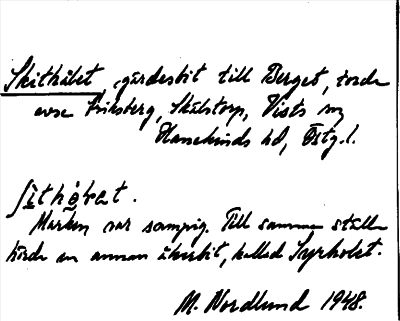 Skithålet, gärdesbit till Berget, torde
avse Eriksberg, Skälstorp, Vists sn
Hanekinds hd, Östg.l.
ſìthə̀ɫət.
Marken var sumpig. Till samma ställe
hörde en annan åkerbit, kallad Syrholet.
M. Nordlund 1948.